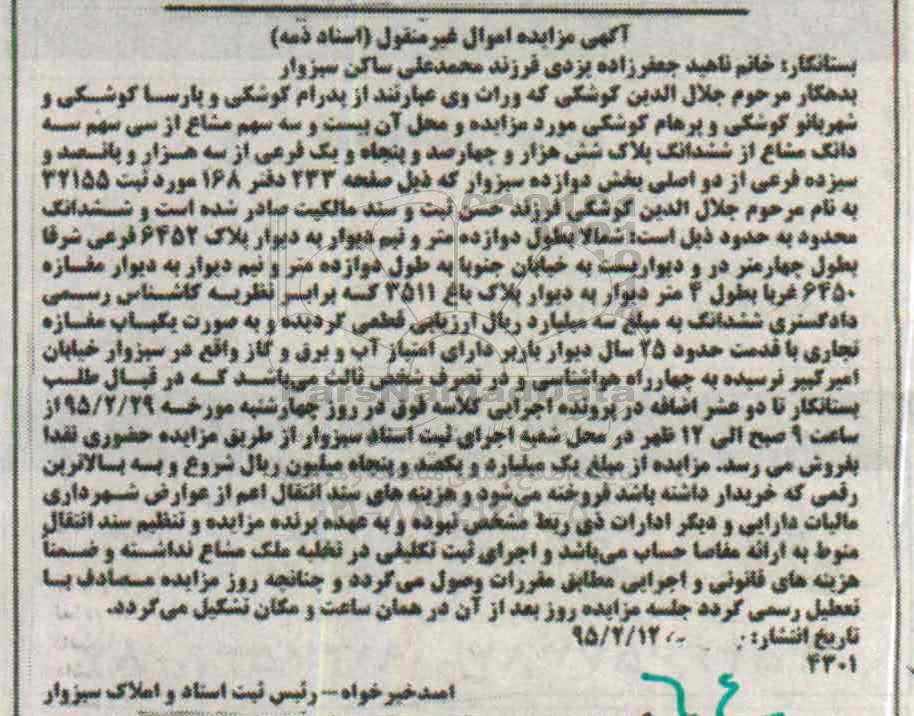 آگهی مزایده اموال غیرمنقول (اسناد ذمه)
بستانکار: خانم ناهید جعفرزاده یزدی فرزند محمدعلی ساکن سبزوار
بدهکار مرحوم جلال الدین کوشکی که وراث وی عبارتند از پدرام کوشکی و پارسا کوشکی و
شهربانو کوشکی و پرهام کوشکی مورد مزایده و محل آن بیست و سه سهم مشاع از سی سهم سه
دانگ مشاع از ششدانگ پلاک شش هزار و چهارصد و پنجاه و یک فرعی از سه هزار و پانصد و
سیزده فرعی از دو اصلی بخش دوازده سبزوار که ذیل صفحه ۲۳۳ دفتر ۱۶۸ مورد ثبت ۳۲۱۵۵
به نام مرحوم جلال الدین کوشکی فرزند حسن ثبت و سند مالکیت صادر شده است و ششدانگ
محدود به حدود ذیل است: شمالا بطول دوازده متر و نیم دیوار به دیوار پلاک ۶۴۵۲ فرعی شرقا
بطول چهارمتر در و دیواریست به خیابان جنوبا به طول دوازده متر و نیم دیوار به دیوار مغازه
۶۴۵۰ غربا بطول ۴ متر دیوار به دیوار پلاک باغ ۳۵۱۱ که برابر نظریه کاشناس رسمی
دادگستری ششدانگ به مبلغ سه میلیارد ریال ارزیابی قطعی گردیده و به صورت یکباب مغازه
تجاری با قدمت حدود ۲۵ سال دیوار باربر دارای امتیاز آب و برق و گاز واقع در سبزوار خیابان
امیرکبیر نرسیده به چهارراه هواشناسی و در تصرف شخص ثالث می‌باشد که در قبال طلب
بستانکار تا دو عشر اضافه در پرونده اجرایی کلاسه فوق در روز چهارشنبه مورخه ۹۵/۲/۲۹ از
ساعت ۹ صبح الی ۱۲ ظهر در محل شعبه اجرای ثبت اسناد سبزوار از طریق مزایده حضوری نقدا
بفروش می رسد. مزایده از مبلغ یک میلیارد و یکصد و پنجاه میلیون ریال شروع و به بالاترین
رقمی که خریدار داشته باشد فروخته می‌شود و هزینه های سند انتقال اعم از عوارض شهرداری
مالیات دارایی و دیگر ادارات ذی ربط مشخص نبوده و به عهده برنده مزایده و تنظیم سند انتقال
منوط به ارائه مفاصا حساب می‌باشد و اجرای ثبت تکلیفی در تخلیه ملک مشاع نداشته و ضمنا
هزینه های قانونی و اجرایی مطابق مقررات وصول می‌گردد و چنانچه روز مزایده مصادف با
تعطیل رسمی گردد جلسه مزایده روز بعد از آن در همان ساعت و مکان تشکیل می‌گردد.
تاریخ انتشار: ۹۵/۲/۱۲
۴۳۰۱
اسد خیرخواه – رئیس ثبت اسناد و املاک سبزوار